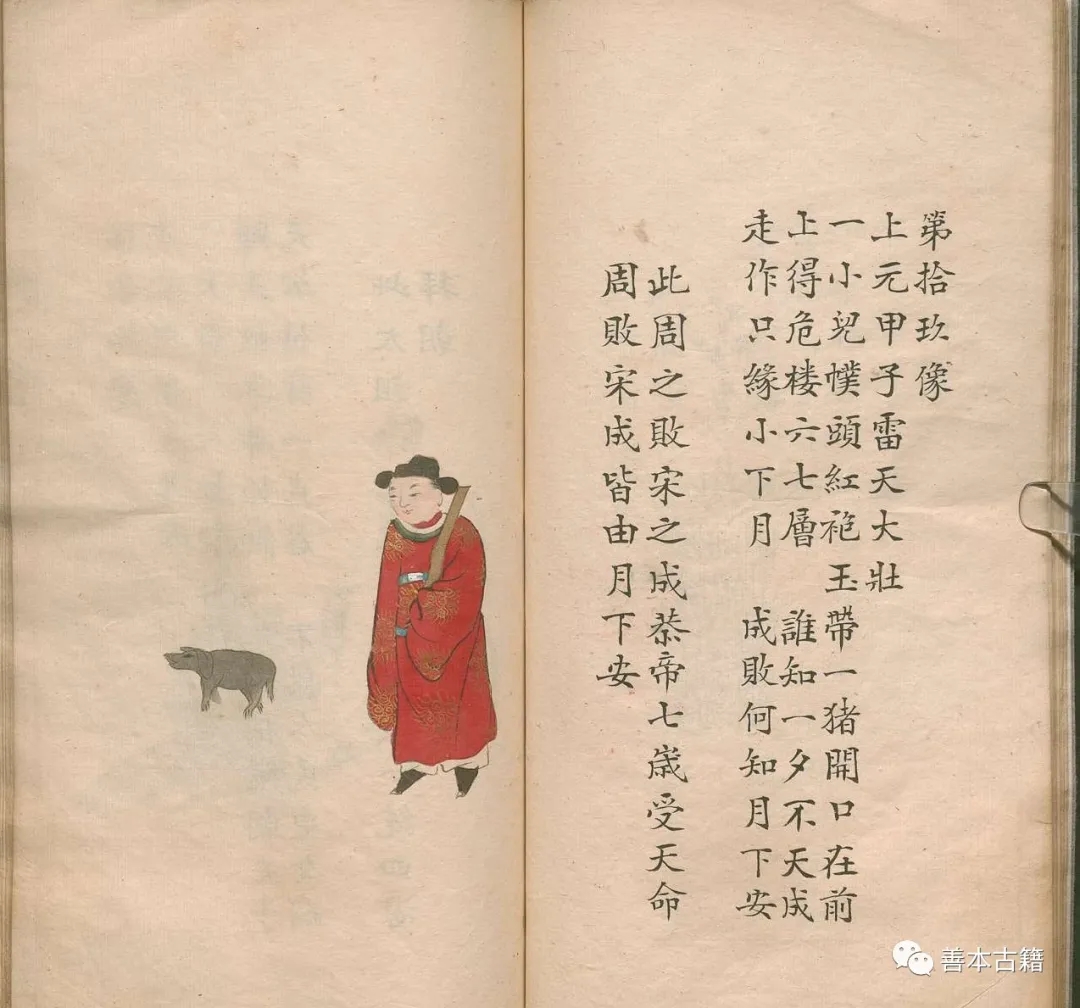 第拾玖像
上元甲子雷天大壯
一小兒幞頭紅袍玉帶一猪開口在前
上得危楼六七層 誰知一夕不天成
走作只緣小下月 成敗何知月下安
此周之敗宋之成恭帝七歲受天命
周敗宋成皆由月下安
善本古籍